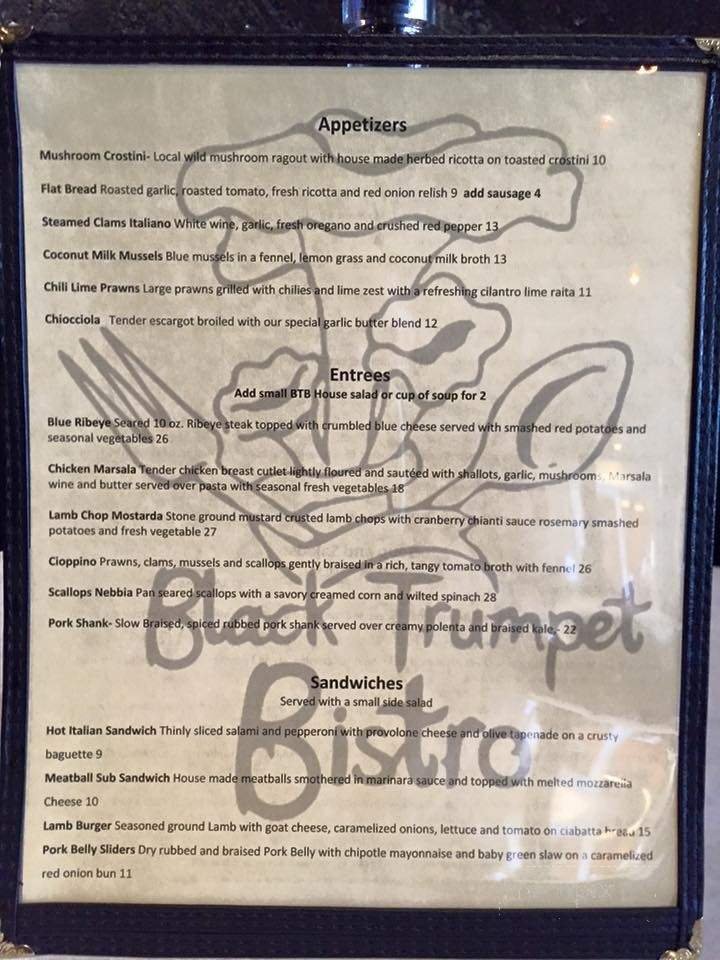 Appetizers
Mushroom Crostini- Local wild mushroom ragout with house made herbed ricotta on toasted crostini 10
Flat Bread Roasted garlic, roasted tomato, fresh ricotta and red onion relish 9 add sausage 4
Steamed Clams Italiano White wine, garlic, fresh oregano and crushed red pepper 13
Coconut Milk Mussels Blue mussels in a fennel, lemon grass and coconut milk broth 13
Chili Lime Prawns Large prawns grilled with chilies and lime zest with a refreshing cilantro lime raita 11
Chiocciola Tender escargot broiled with our special garlic butter blend 12
Entrees
Add small BTB House salad or cup of soup for 2
Blue Ribeye Seared 10 oz. Ribeye steak topped with crumbled blue cheese served with smashed red potatoes and
seasonal vegetables 26
Chicken Marsala Tender chicken breast cutlet lightly floured and sautéed with shallots, garlic, mushrooms, Marsala
wine and butter served over pasta with seasonal fresh vegetables 18
Lamb Chop Mostarda Stone ground mustard crusted lamb chops with cranberry chianti sauce rosemary smashed
potatoes and fresh vegetable 27
Cioppino Prawns, clams, mussels and scallops gently braised in a rich, tangy tomato broth with fennel 26
Scallops Nebbia Pan seared scallops with a savory creamed corn and wilted spinach 28
Pork Shank- Slow Braised, spiced rubbed pork shank served over creamy polenta and braised kale,- 22
Black Trumpet
Bistro
Sandwiches
Served with a small side salad
Hot Italian Sandwich Thinly sliced salami and pepperoni with provolone cheese and olive tapenade on a crusty
baguette 9
Meatball Sub Sandwich House made meatballs smothered in marinara sauce and topped with melted mozzarella
Cheese 10
Lamb Burger Seasoned ground Lamb with goat cheese, caramelized onions, lettuce and tomato on ciabatta bread 15
Pork Belly Sliders Dry rubbed and braised Pork Belly with chipotle mayonnaise and baby green slaw on a caramelized
red onion bun 11